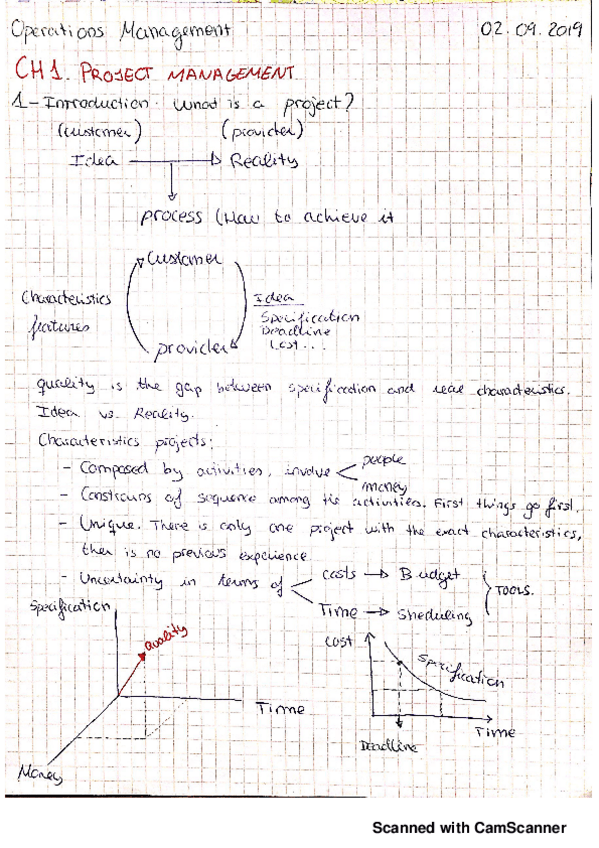 Operations Management 02.09.2019
CH1. PROJECT MANAGEMENT.
1-Introduction. What is a project?
(customer) (provider)
Idea Reality
process (How to achieve it
Customer
Characteristics
features
Idea
Specification
Deadline
Cost...
provider
quality is the gap between specification and real characteristics.
Idea vs. Reality.
Characteristics projects:
- Composed by activities, involve people
money
- Constrains of sequence among the activities. First things go first.
- Unique. There is only one project with the exact characteristics,
ther is no previous experience.
- Uncertainty in terms of costs → Budget
Time → Sheduling
TOOLS.
Specification
Quality
Time
Money
Cost
Specification
Time
Deadline
Scanned with CamScanner